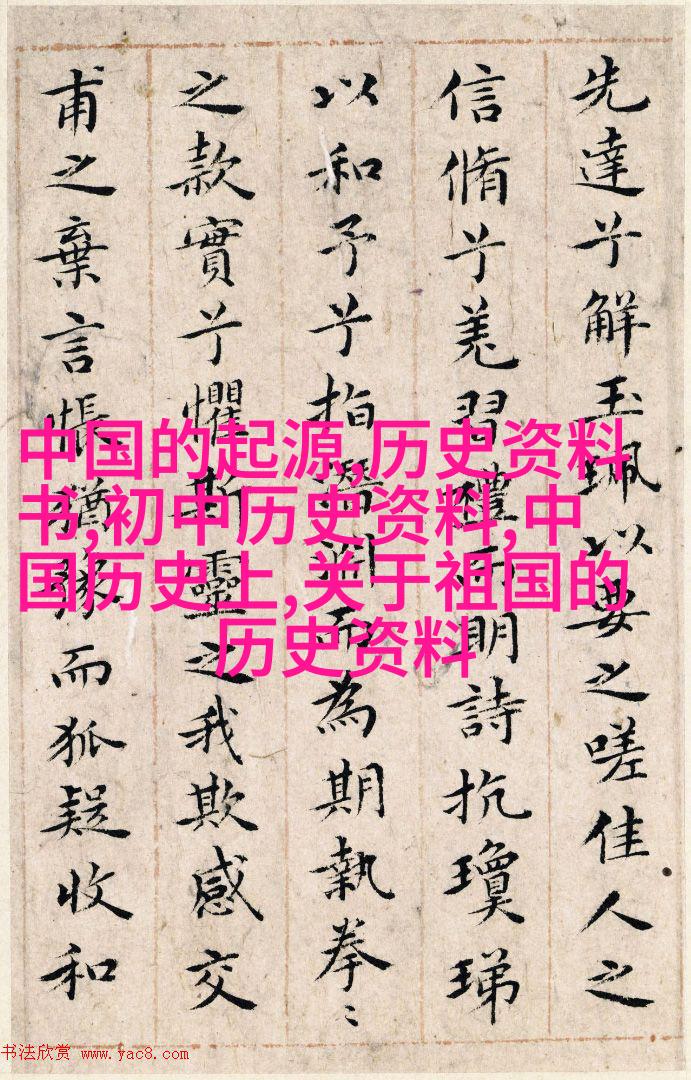 先達兮解玉珮以要之嗟佳人之
信脩兮羌習禮而明詩抗瓊珶
以和予兮指潛淵而為期執拳〻
之款實兮懼斯靈之我欺感交
甫之棄言悵猶豫而狐疑收和
中国的起源,历史资料
书,初中历史资料,中
国历史上,关于祖国的
历史资料
书法欣赏 www.yac8.com